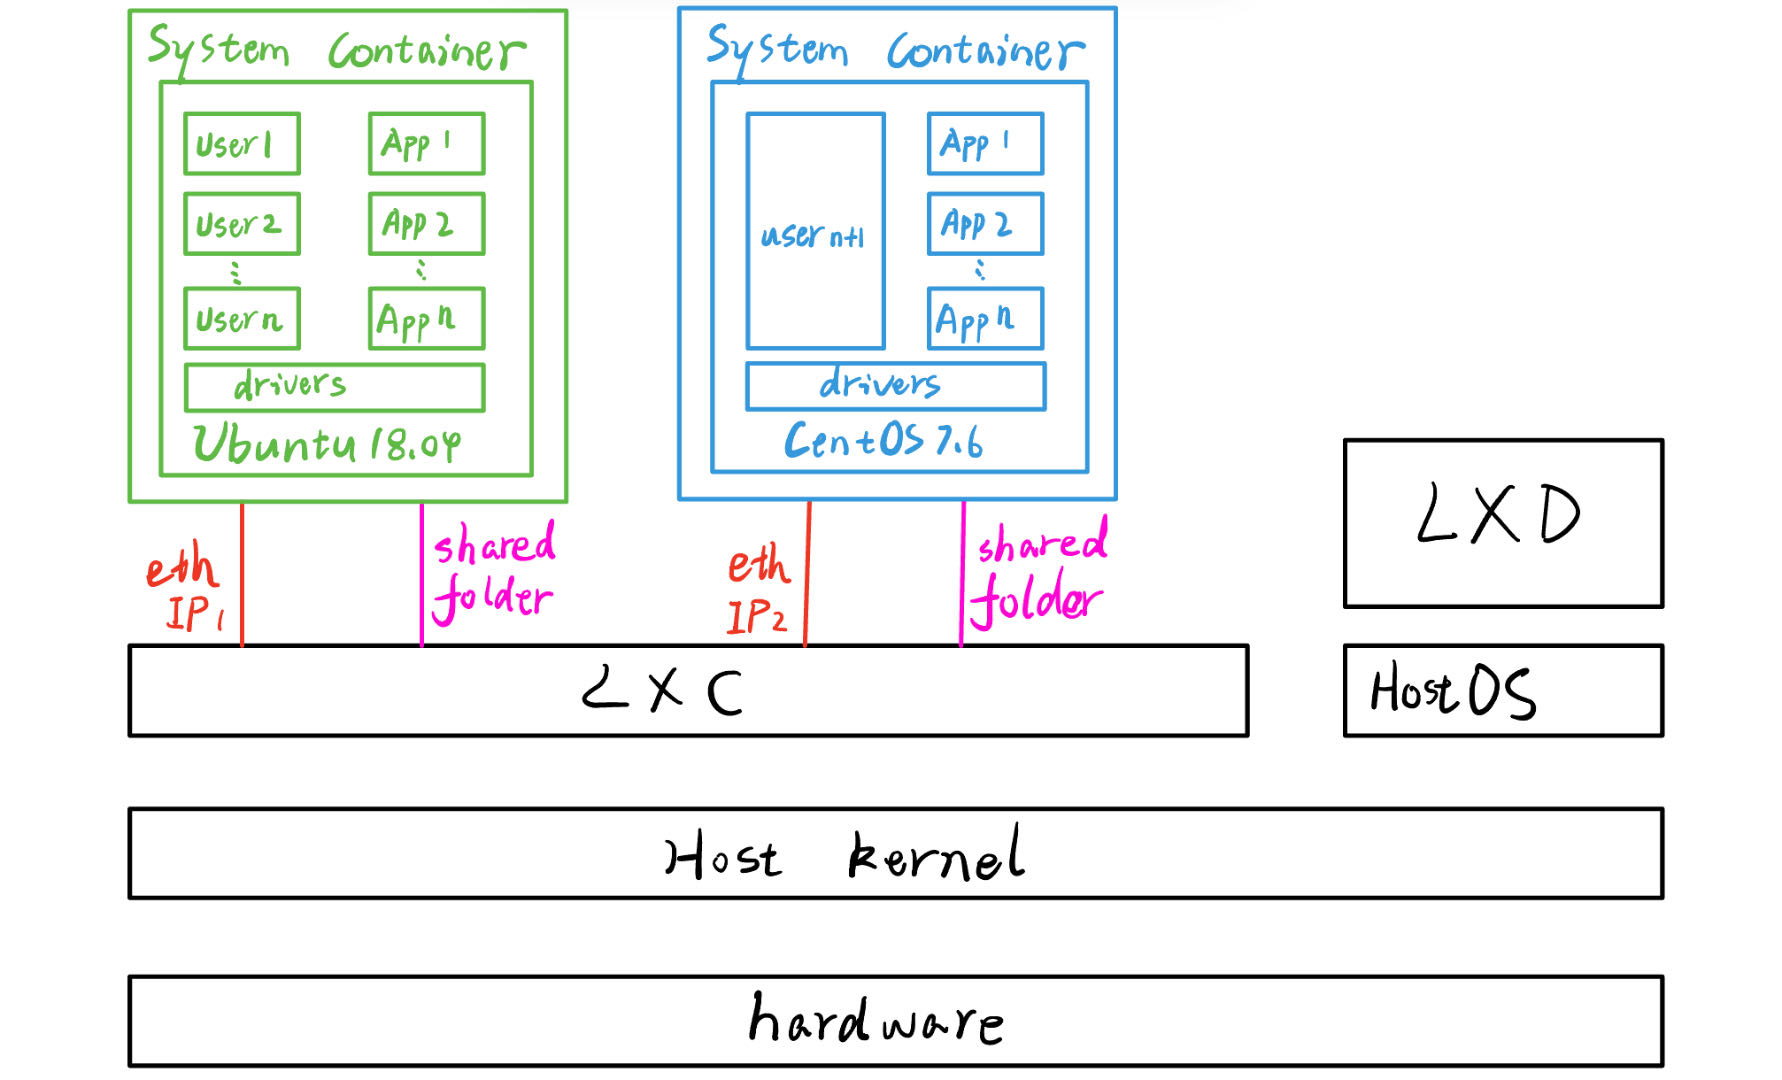 System Container
User1
App 1
User2
App 2
Usern
App n
drivers
Ubuntu 18.04
System Container
user n+1
App 1
App 2
App n
drivers
CentOS 7.6
eth
IP1
shared
folder
eth
IP2
shared
folder
LXD
LXC
Host OS
Host kernel
hardware